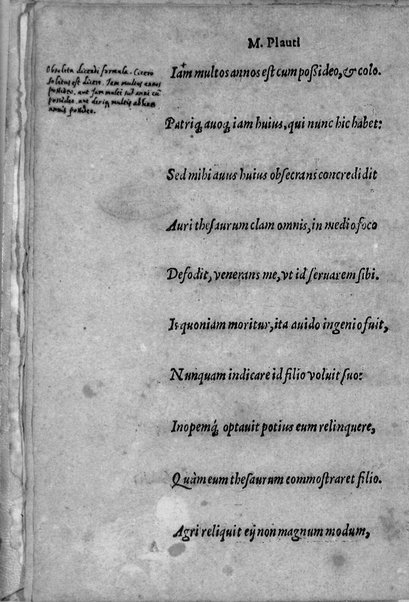 M. Plauti
Obsoleta dicendi formula. Cicero
solitus est dicere. Jam multos annos
possideo, aut jam multi sunt anni cũ
possideo, aut deniq multis ab hinc
annis possideo.
Iam multos annos est cum poßideo, & colo.
Patriq; auoq; iam huius, qui nunc hic habet:
Sed mihi auus huius obsecrans concredidit
Auri thesaurum clam omnis, in medio foco
Defodit, venerans me, vt id seruarem sibi.
Is quoniam moritur, ita auido ingenio fuit,
Nunquam indicare id filio voluit suo:
Inopemq; optauit potius eum relinquere,
Quàm eum thesaurum commostraret filio.
Agri reliquit eij non magnum modum,